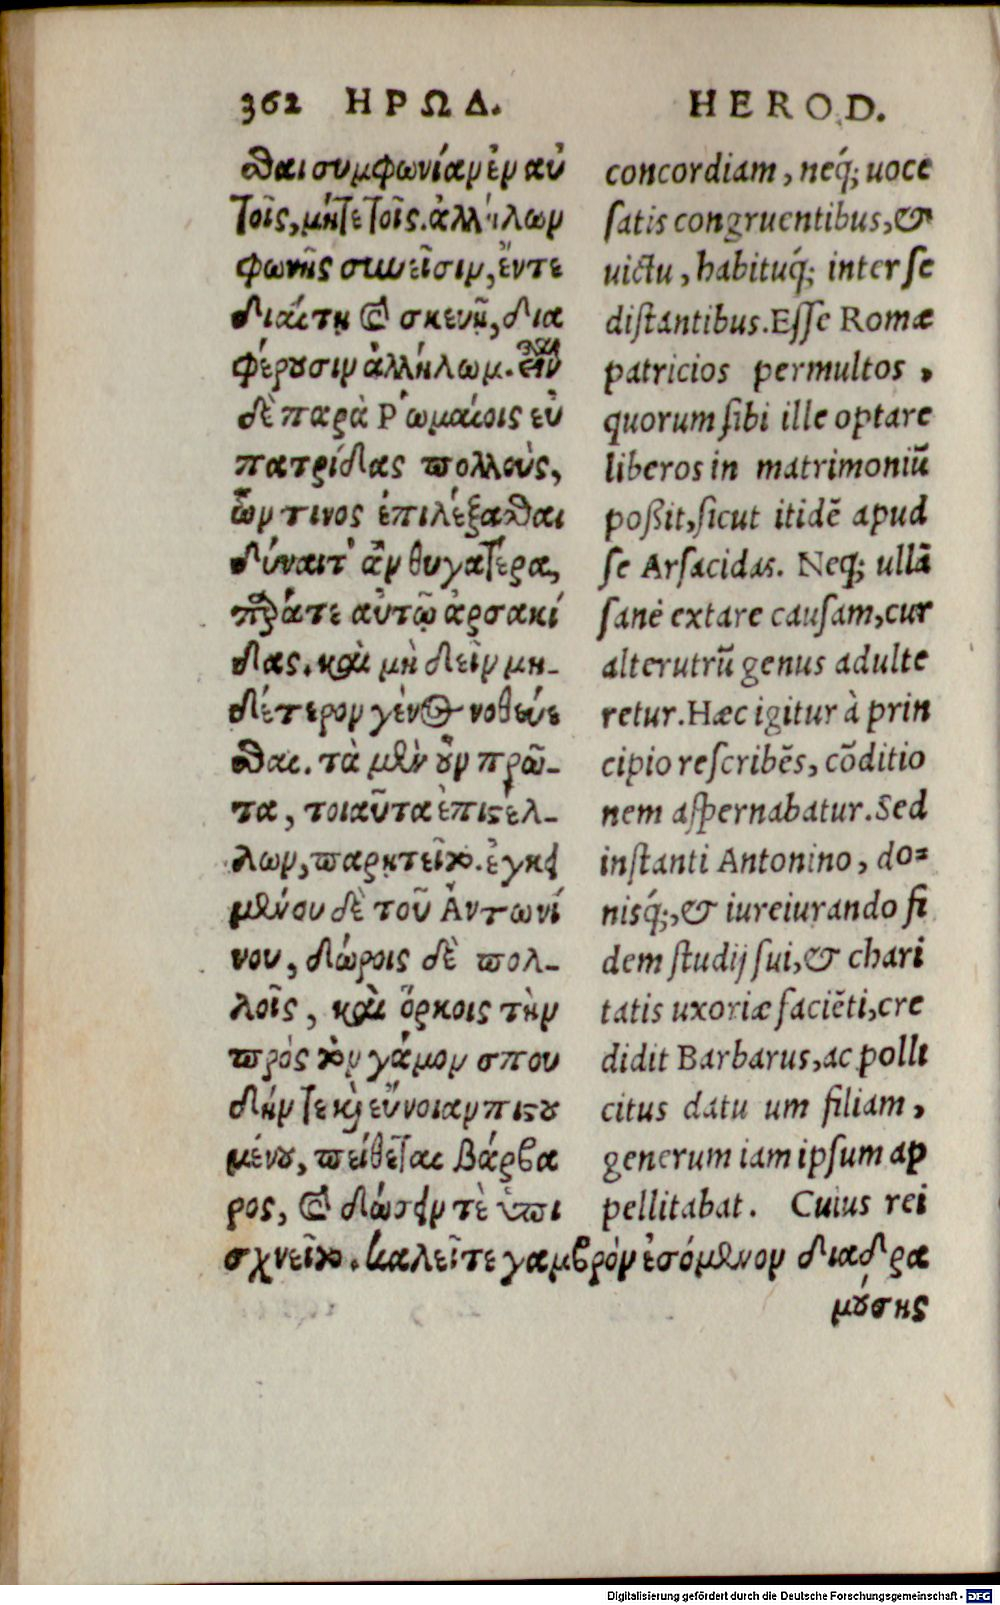 362 ΗΡΩΔ.
σθαι συμφωνίαν ἐν αὐ
τοῖς, μήτε τοῖς. ἀλλήλων
φωνῆς συνεῖσιν, ἔν τε
διαίτῃ καὶ σκευῇ, δια
φέρουσιν ἀλλήλων. εἶναι
δὲ παρὰ Ῥωμαίοις εὐ
πατρίδας πολλοὺς,
ὧν τινος ἐπιλέξασθαι
δύναιτ' ἂν θυγατέρα,
παρά τε αὐτῷ ἀρσακί
δας. καὶ μὴ δεῖν μη-
δέτερον γένος νοθεύε
σθαι. τὰ μὲν οὖν πρῶ-
τα, τοιαῦτα ἐπιστέλ-
λων, παρῃτεῖτο. ἐγκει
μένου δὲ τοῦ Ἀντωνί
νου, δώροις δὲ πολ-
λοῖς, καὶ ὅρκοις τὴν
πρὸς τὸν γάμον σπου
δήν τε καὶ εὔνοιαν πιστου
μένου, πείθεται βάρβα
ρος, καὶ δώσειν τὲ ὑπι
σχνεῖτο. καλεῖ τε γαμβρὸν ἐσόμενον διαδρα
μούσης
HEROD.
concordiam, neq́; uoce
ſatis congruentibus, &
uictu, habituq́; inter ſe
diſtantibus. Eſſe Romæ
patricios permultos,
quorum ſibi ille optare
liberos in matrimoniũ
poßit, ſicut itidẽ apud
ſe Arſacidas. Neq; ullã
ſanè extare cauſam, cur
alterutrũ genus adulte
retur. Hæc igitur à prin
cipio reſcribẽs, cõditio
nem aſpernabatur. Sed
inſtanti Antonino, do=
nisq́;, & iureiurando fi
dem ſtudij ſui, & chari
tatis uxoriæ faciẽti, cre
didit Barbarus, ac polli
citus datu um filiam,
generum iam ipſum ap
pellitabat. Cuius rei
Digitalisierung gefördert durch die Deutsche Forschungsgemeinschaft - DFG